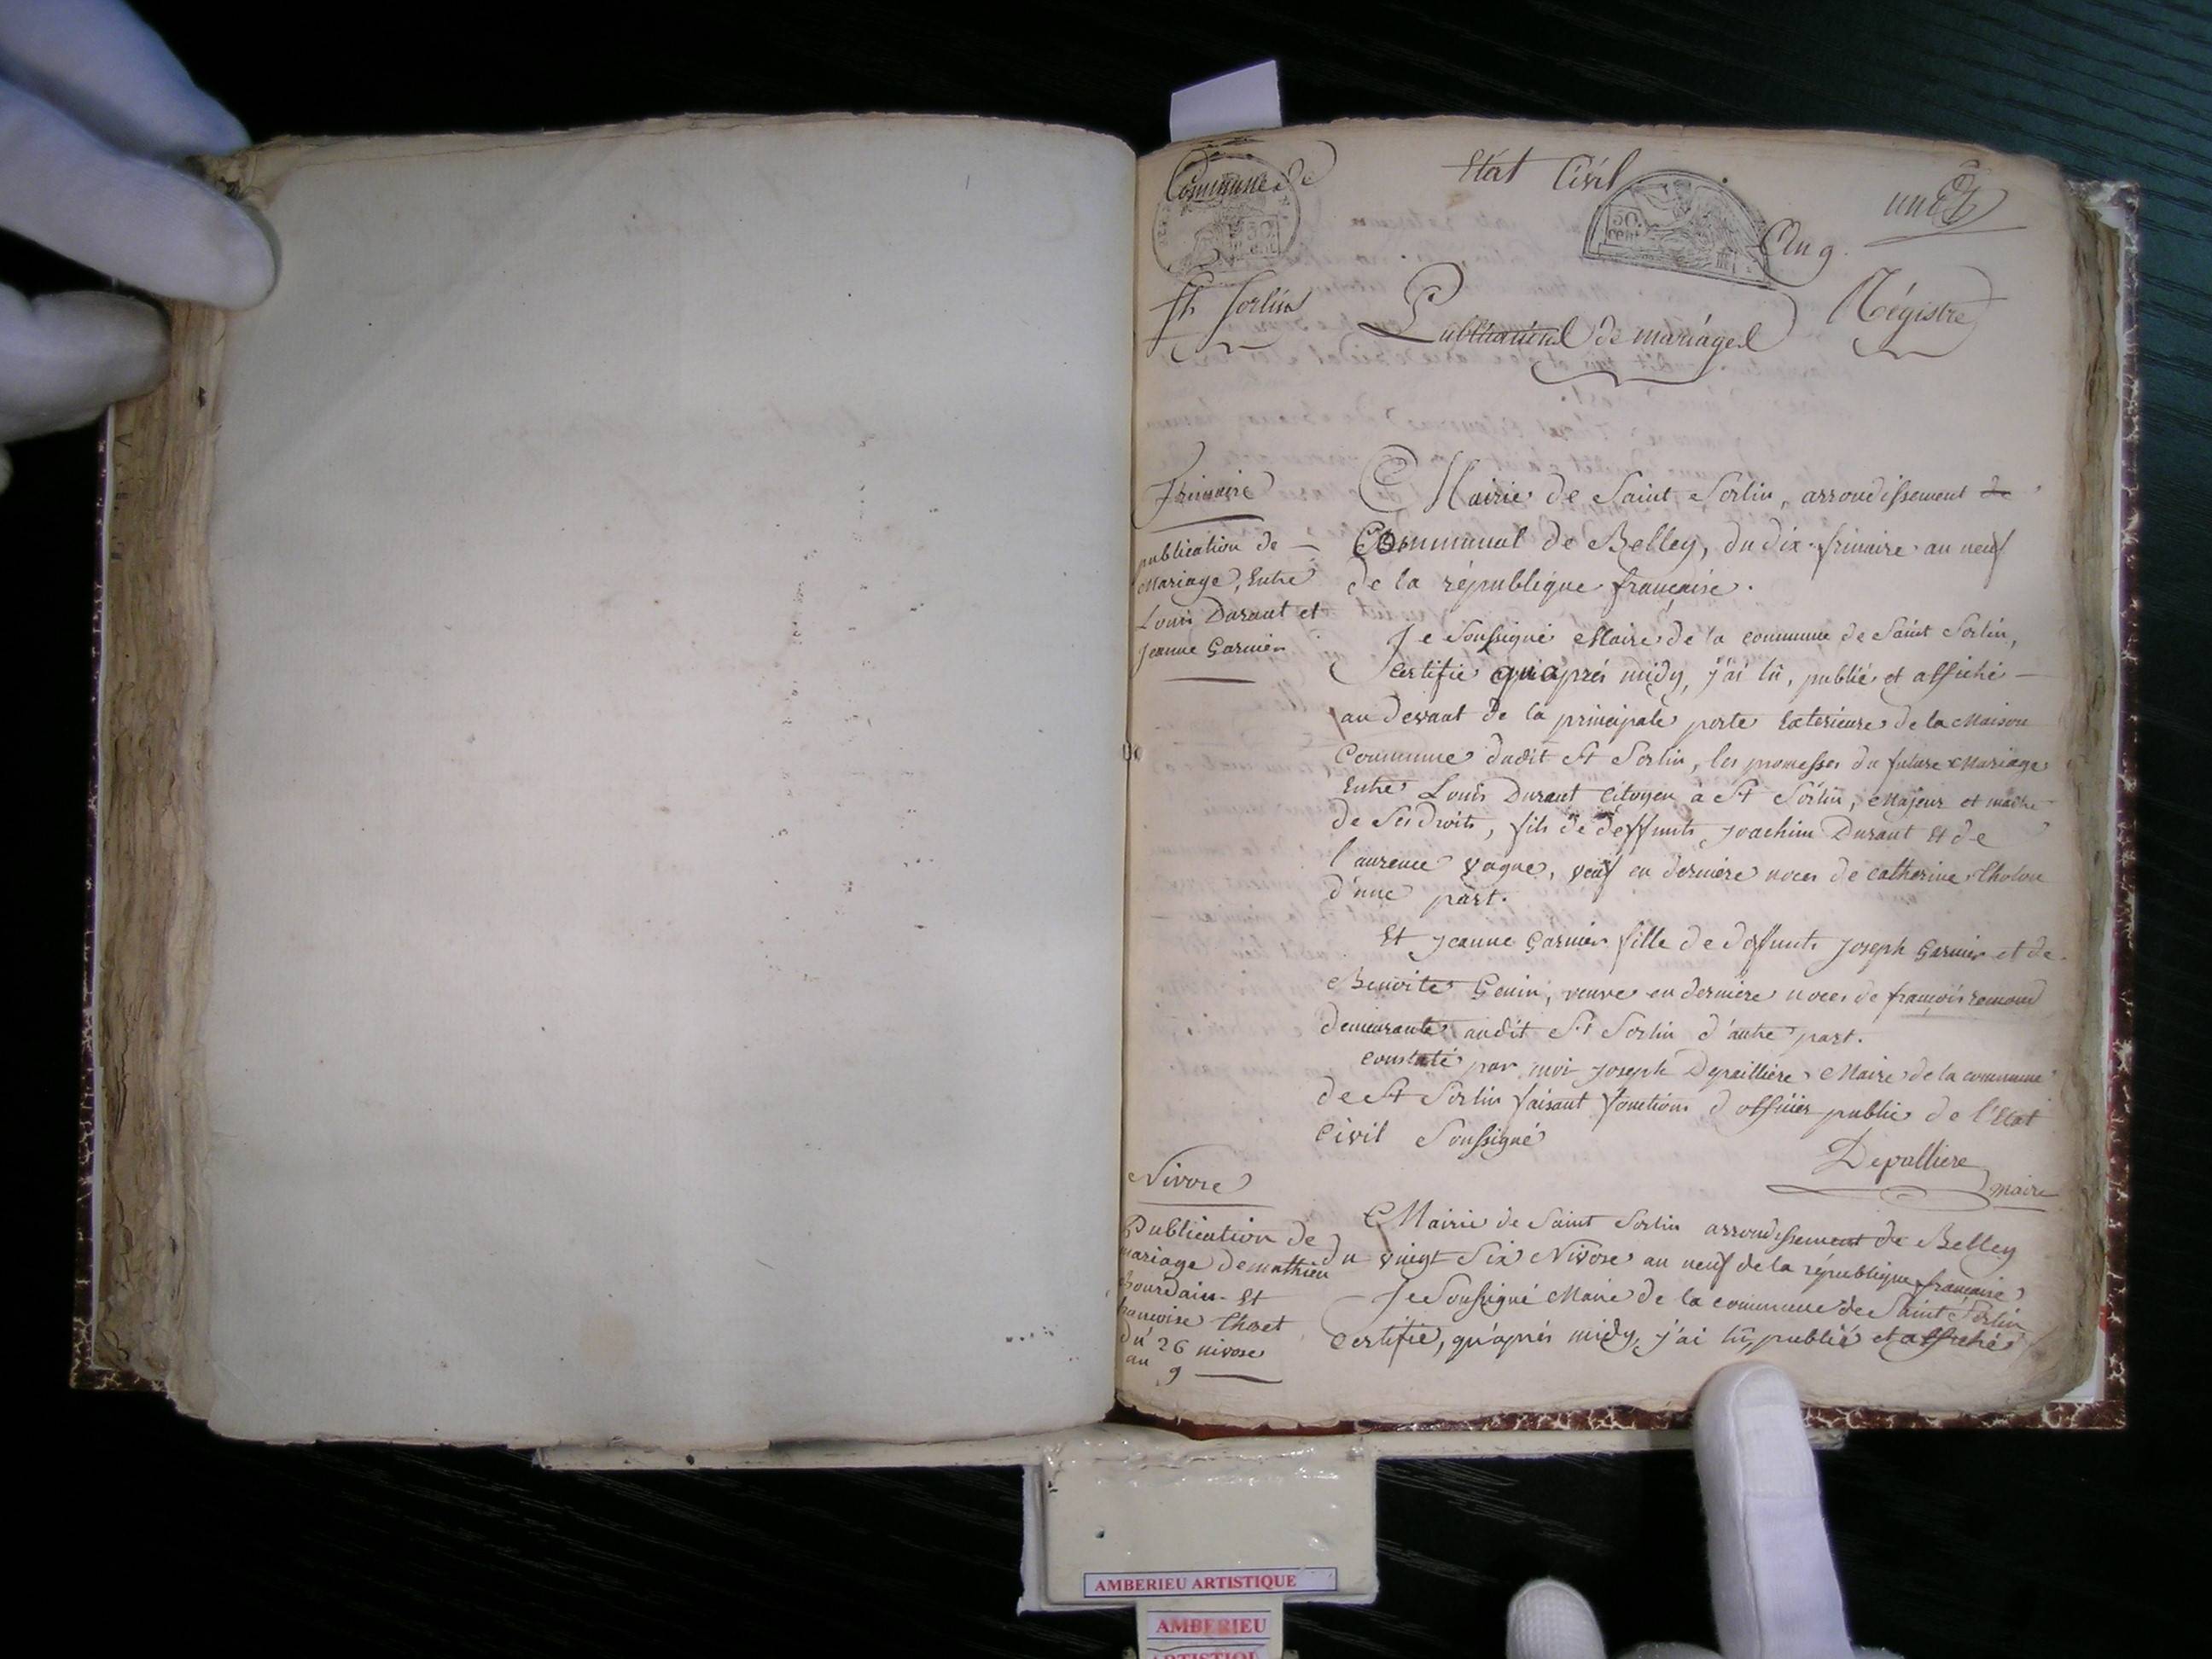 Commune de
Etat Civil
une
50 cent
50 cent
An 9.
St Sorlin
Publications de mariages
Régistre
frimaire
publication de
Mariage, Entre
Louis Durant et
Jeanne Garnier
Mairie de Saint Sorlin, arrondissement de
Communal de Belley, du dix frimaire an neuf
de la république française.
Je Soussigné Maire de la commune de Saint Sorlin,
Certifie qu'aprés midy, j'ai lû, publié et affiché
au devant de la principale porte Exterieure de la Maison
Commune dudit St Sorlin, les promesses du future Mariage
Entre Louis Durant Citoyen à St Sorlin, Majeur et maitre
de Ses droits, fils de deffunts Joachim Durant Et de
laurence vagne, veuf en derniere noces de catherine Cholou
d'une part.
Et Jeanne Garnier fille de deffunts Joseph Garnier et de
Benoite Genin, veuve en derniere noces de françois remond
demeurante audit St Sorlin d'autre part.
constaté par moi Joseph Depailliere Maire de la commune
de St Sorlin faisant fonctions d'officier public de l'Etat
Civil Soussigné
Depalliere
maire
Nivose
Publication de
mariage de mathieu
Bourdain Et
francoise Choset
du 26 nivose
an 9
Mairie de Saint Sorlin arrondissement de Belley
du vingt Six Nivose an neuf de la république française
Je Soussigné Maire de la commune de Saint Sorlin
Certifie, qu'aprés midy, j'ai lû, publié et affiché
AMBERIEU ARTISTIQUE
AMBERIEU
ARTISTIQUE